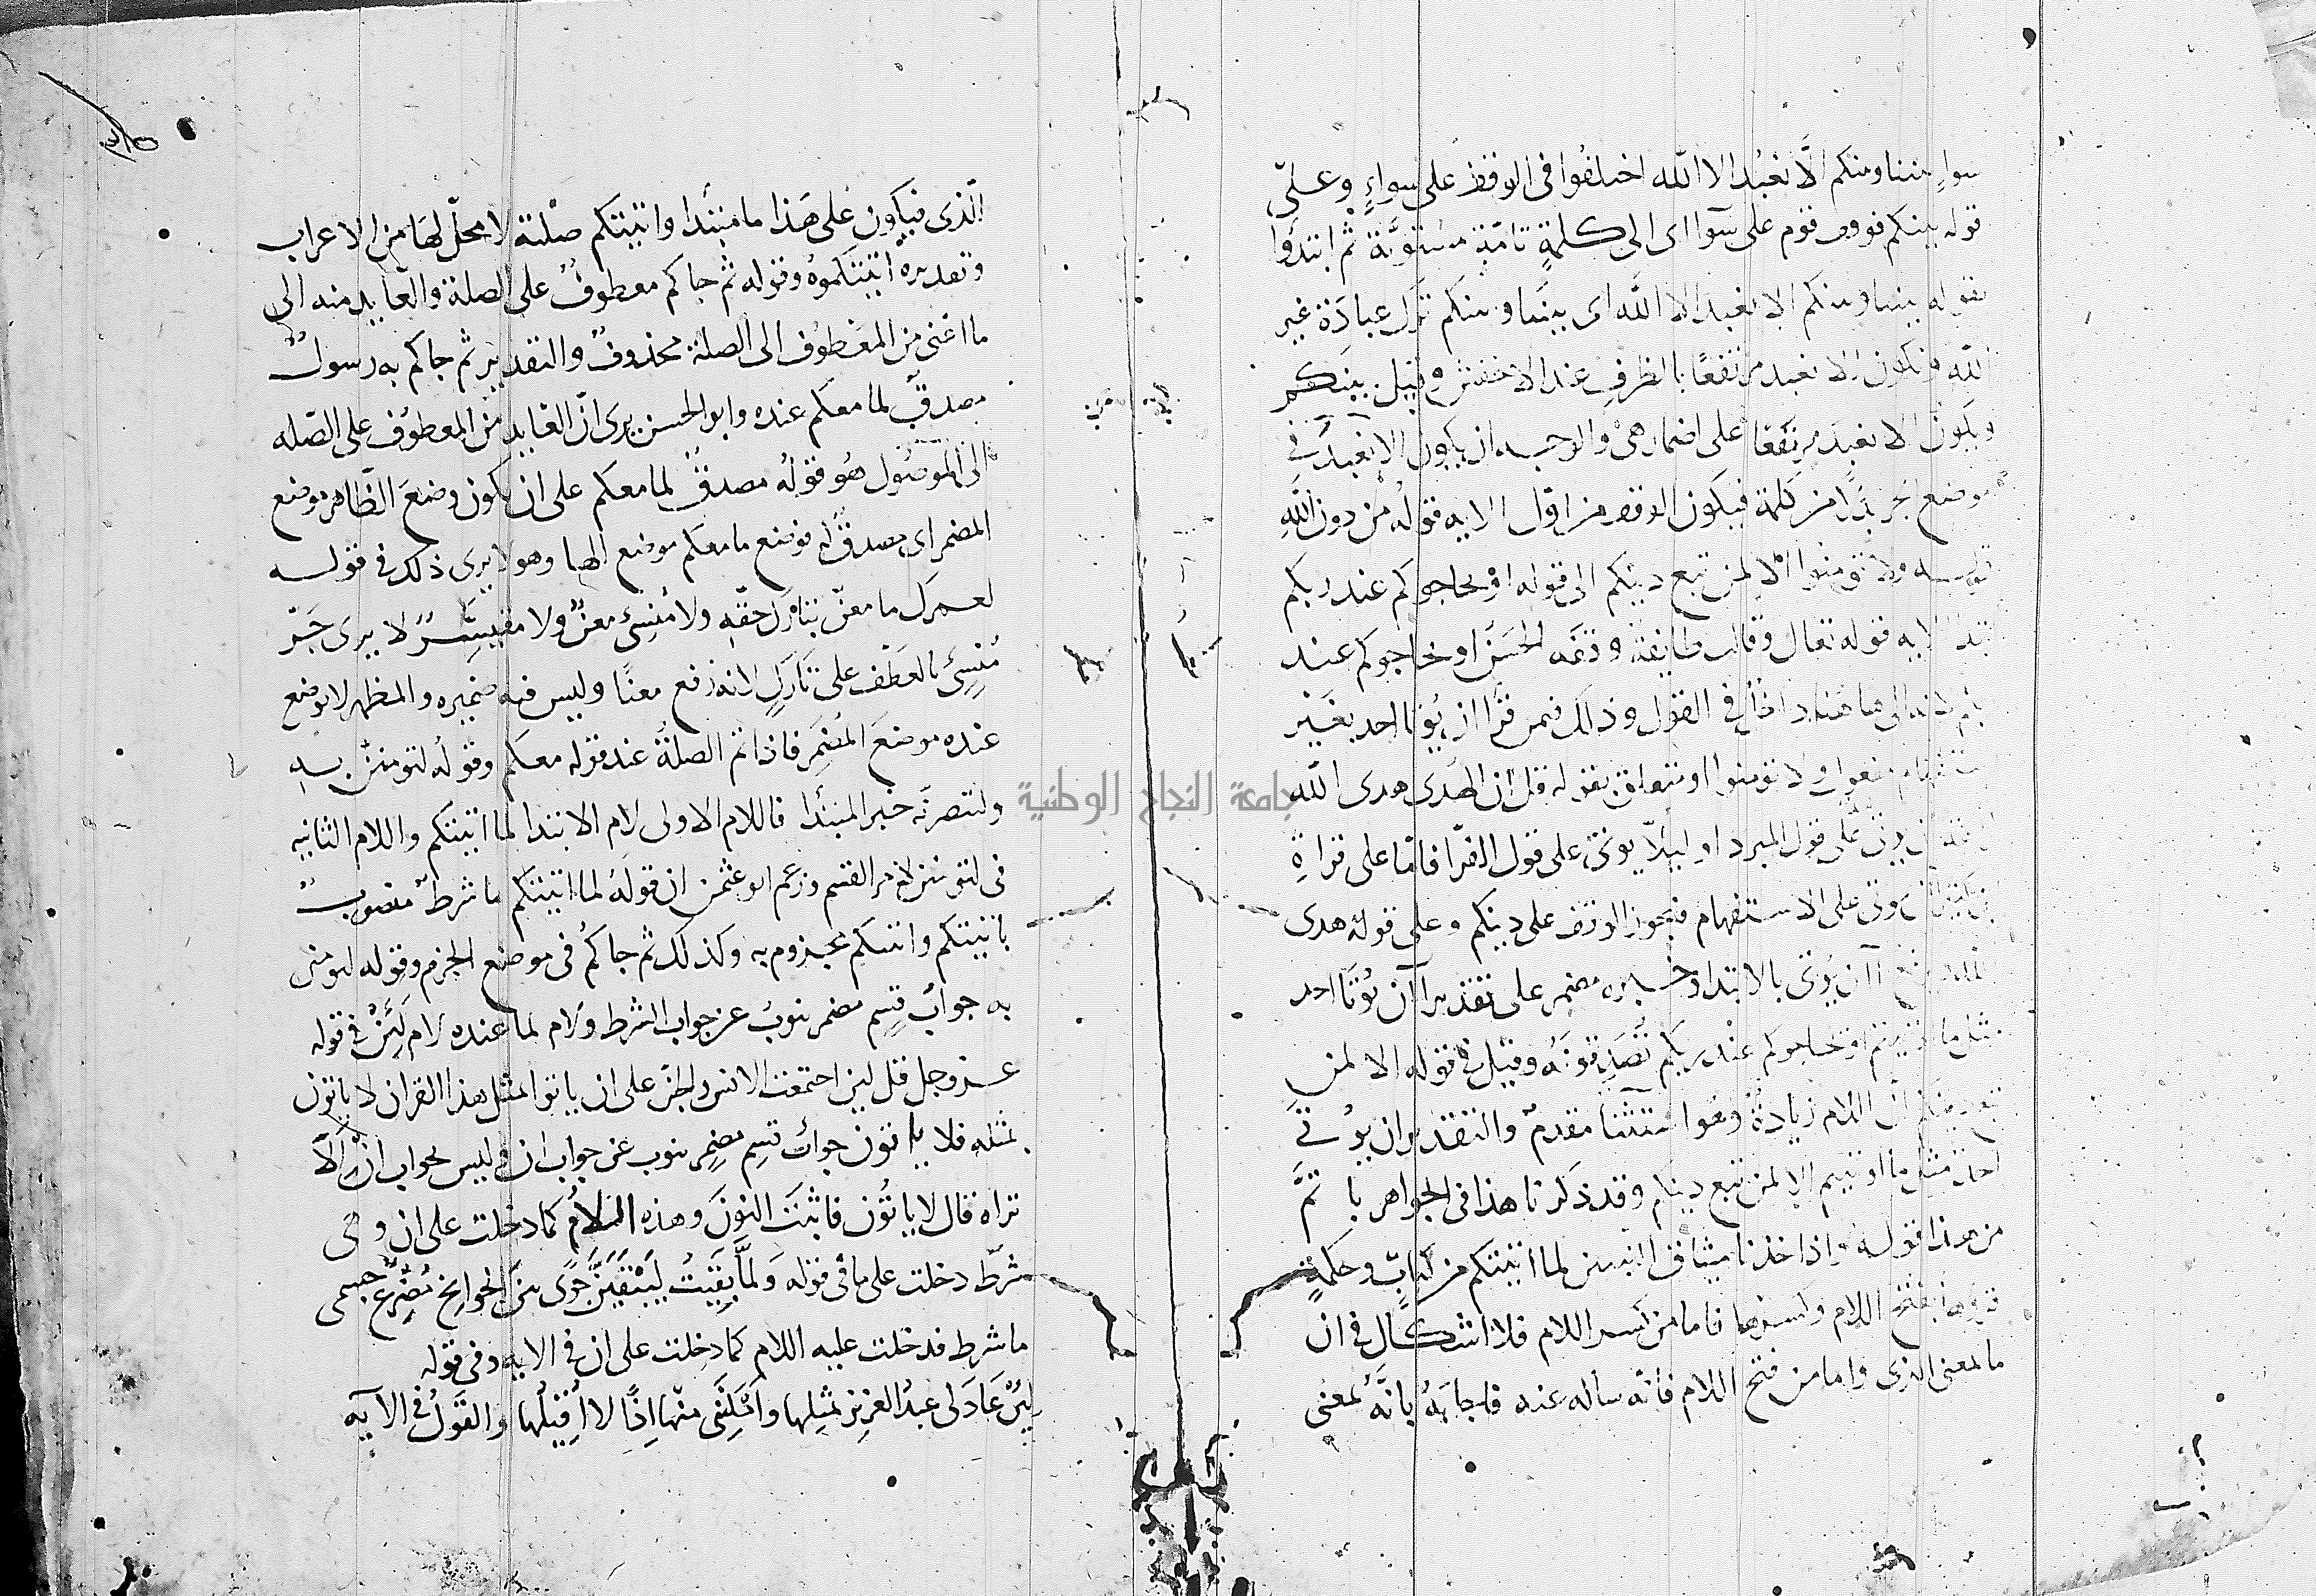 سواءٍ بيننا وبينكم الَّا نعبُد الا الله اختلفُوا فى الوقف على سواءٍ وعلى
قوله بينكم فوقف قوم على سوآء اى الى كلمةٍ تامّة مستويَّة ثم ابتدُوا
بقوله بيننا وبينكم الا نعبد الا الله اى بيننا وبينكم ترك عبادَة غير
الله فيكون الا نعبد مرتفعًا بالظرف عند الاخفش وقيل بينكم
ويكون الا نعبد مرتفعا على اضمار هى والوجه ان يكون الا نعبدَ فى
موضع الجر بدلا من كلمة فيكون الوقف من اوّل الايه قوله من دون الله
قوله ولا تومنوا الا لمن تبع دينكم الى قوله او يحاجوكم عند ربكم
الايه قوله تعالى وقالت طايفة وقفه الحسَن او يحاجوكم عند
ربكم لانه الى هاهنا داخل فى القول وذلك فيمن قرأ ان يُوتا احد بغَير
ولا تومنوا او متعلق بقوله قل ان الهُدى هدى الله
على قول المبرد او ليلاّ يوتى على قول الفرّا فامّا على قراةِ
على الاستفهام فيجوز الوقف على دينكم وعلى قوله هدى
آان يُوتى بالابتدا وخبره مضمر على تقدير آان يُوتَا احد
مثل ما اوتيتم او يحاجوكم عند ربكم تُصَدِقونَه وقيل فى قوله الا لمن
تبع دينكم انّ اللام زيادةٌ وهُوا ستثنا مقدمٌ والتقدير ان يوتى
احد مثل ما اوتيتم الا لمن تبع دينكم وقد ذكرنا هذا فى الجواهر با تمَّ
من هذا قوله واذ اخذنا ميثاق النبيين لما اتيتكم من كتابٍ وحكمةٍ
بفتح اللام وكسرها فاما من كسر اللام فلا اشكال فى ان
ما بمعنى الذى واما من فتح اللام فانّه سأله عنه فاجابَهُ بانَّهُ بمعنى
الّذى فيكون على هَذا ما مبتدا واتيتكم صلته لا محلّ لها من الاعراب
وتقديره اتيتكموهُ وقوله ثم جاكم معطوفٌ على الصلة والعايد منه الى
ما اعنى من المعْطوف الى الصلة محذوفٌ والتقدير ثم جاكم به رسولٌ
مصدقٌ لما معكم عنده وابو الحسن يرى انّ العايد من المعطوف على الصّله
الى الموصُول هُو قوله مصدقٌ لما معكم على ان يكون وضعَ الظاهر موضع
المضمر اى مصدقٌ له فوضع ما معكم موضع الها وهو لا يرى ذلك فى قوله
لعمرك ما معنٌ بتاركِ حقّه ولا مُنسِىء معنٌ ولا متيسِّرُ لا يرى جَرّ
مُنسِىءٍ بالعَطف على تَاركٍ لانه رفع معنًا وليس فيه ضميره والمظهر لا يوضع
عنده موضعَ المُضمَر فاذا تم الصلةُ عند قوله معكم وقولُه لتومننّ به
ولتنصرنّه خبر المبتدا فاللام الاولى لام الابتدا لما اتيتكم واللام الثانيه
فى لتومنن لام القسم وزعم ابو عثمن ان قوله لما اتيتكم ما شرطٌ منصوبٌ
باتيتكم واتيتكم مجزوم به وكذلك ثم جاكم فى موضع الجزم وقوله لتومنن
به جوابُ قسم مضمر ينوب عن جواب الشرط ولام لما عنده لام لَئِنْ فى قوله
عز وجل قل لين اجتمعت الانس والجنّ على ان ياتوا بمثل هذا القران لا ياتون
بمثله فلا ياتون جواب قسم مضمر ينوب عن جواب ان فليس بجواب ان الَا
تراه قال لا ياتُون فاثبتَ النونَ وهذه اللامُ كما دخلت على ان وهى
شرطٌ دخلت على ما فى قوله وَلَمَّا بَقِيْتُ لَيَبْقَيَنَّ جَوًى بين الجوانِح مُضرِعٌ جسمى
ما شرط فدخلت عليه اللام كما دخلت على ان فى الايه وفى قوله
لَئِنْ عَادَ لى عبدُ العزيز بمثِلها وامْكَنَنى منها اِذًا لا اُقِيلُها والقولُ فى الآيه
جامعة النجاح الوطنية